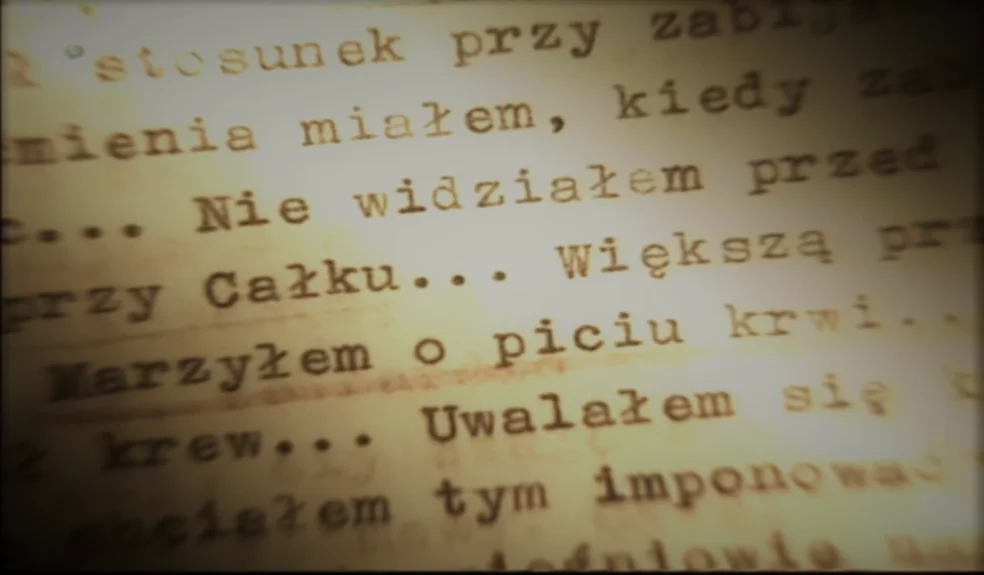 stosunek przy
miałem, kiedy
... Nie widziałem przed
przy Całku... Większą
Marzyłem o piciu krwi...
krew... Uwalałem się
chciałem tym imponować